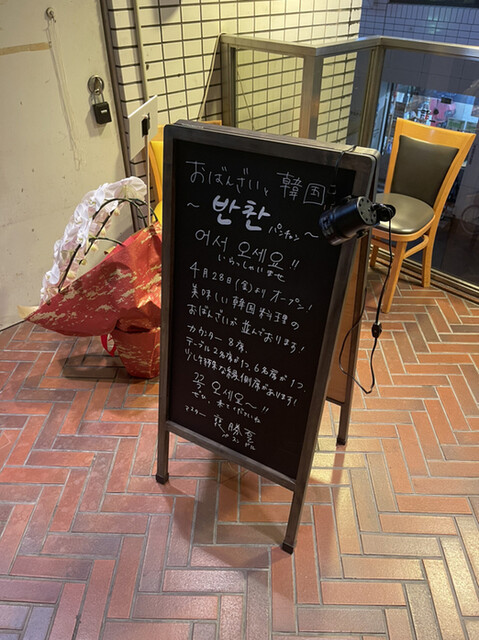 おばんざいと韓国
～ 반찬 パンチャン ～
어서 오세요!!
いらっしゃいませ
4月28日(金)よりオープン!
美味しい韓国料理の
おばんざいが並んでおります!
カウンター8席、
テーブル2名席が1つ、6名席が1つ、
少し特殊な縁側席があります!
꼭 오세요~!!
ぜひ、来てくださいね
マスター